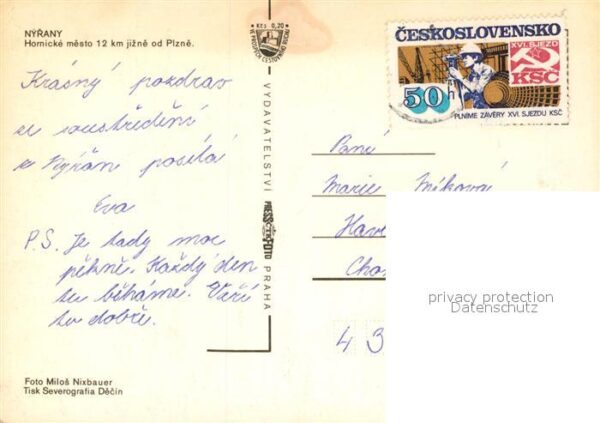 NÝŘANY
Hornické město 12 km jižně od Plzně.
Kčs 0,20
ČESKOSLOVENSKO
XVI. SJEZD
KSČ
50 h
PLNÍME ZÁVĚRY XVI. SJEZDU KSČ
Krásný pozdrav
ze soustředění
z Nýřan posílá
Eva
P.S. Je tady moc
pěkně. Každý den
tu běháme. Vaří
tu dobře.
VYDAVATELSTVÍ
PRESSFOTO
PRAHA
Paní
Marie Míková
Havl
Cho
4 3
privacy protection
Datenschutz
Foto Miloš Nixbauer
Tisk Severografia Děčín